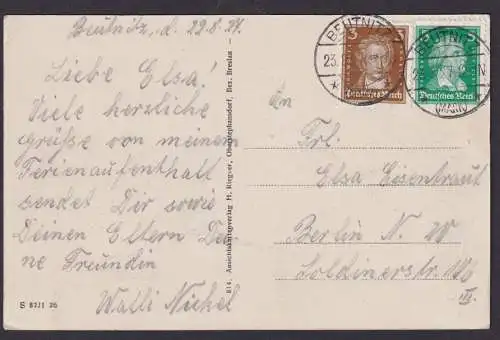 Beutnitz, d. 29.8.27.
Liebe Elsa!
Viele herzliche
Grüße von meinem
Ferienaufenthalt
sendet Dir sowie
Deinen Eltern Dei-
ne Freundin
Walli Nickel
S 8271 26
814. Ansichtskartenverlag H. Riegner, Oberstephansdorf, Bez. Breslau
BEUTNITZ
23.
3
3
Deutsches Reich
BEUTNITZ
(MARK)
Deutsches Reich
An
Frl.
Elsa Eisentraut
Berlin N. W
Soldinerstr. 106
III.